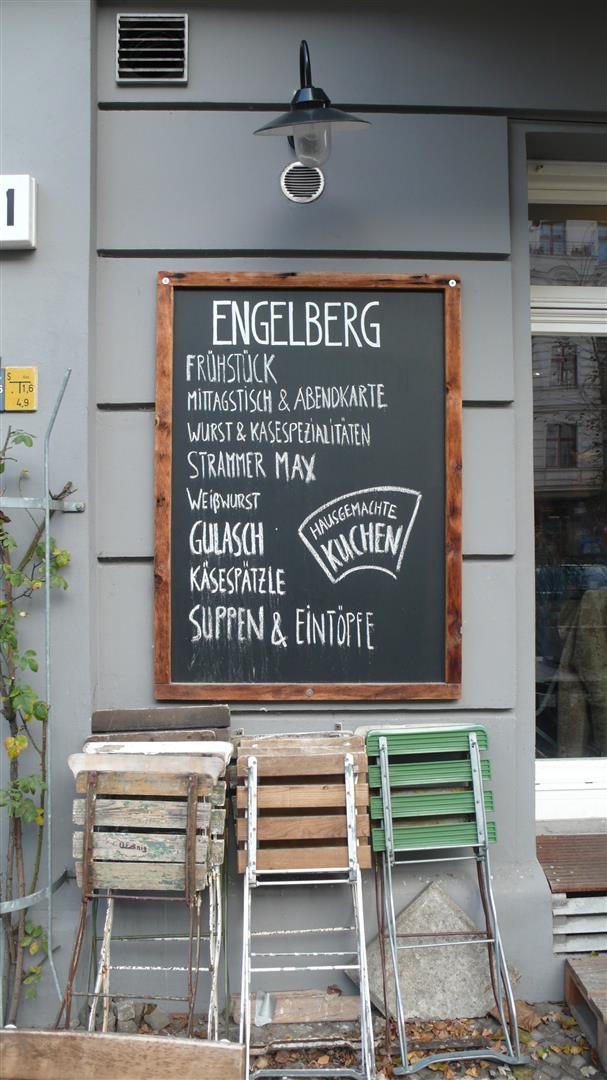 1
S
11,6
4,9
ENGELBERG
FRÜHSTÜCK
MITTAGSTISCH & ABENDKARTE
WURST & KÄSESPEZIALITÄTEN
STRAMMER MAX
WEIßWURST
GULASCH
KÄSESPÄTZLE
SUPPEN & EINTÖPFE
HAUSGEMACHTE
KUCHEN